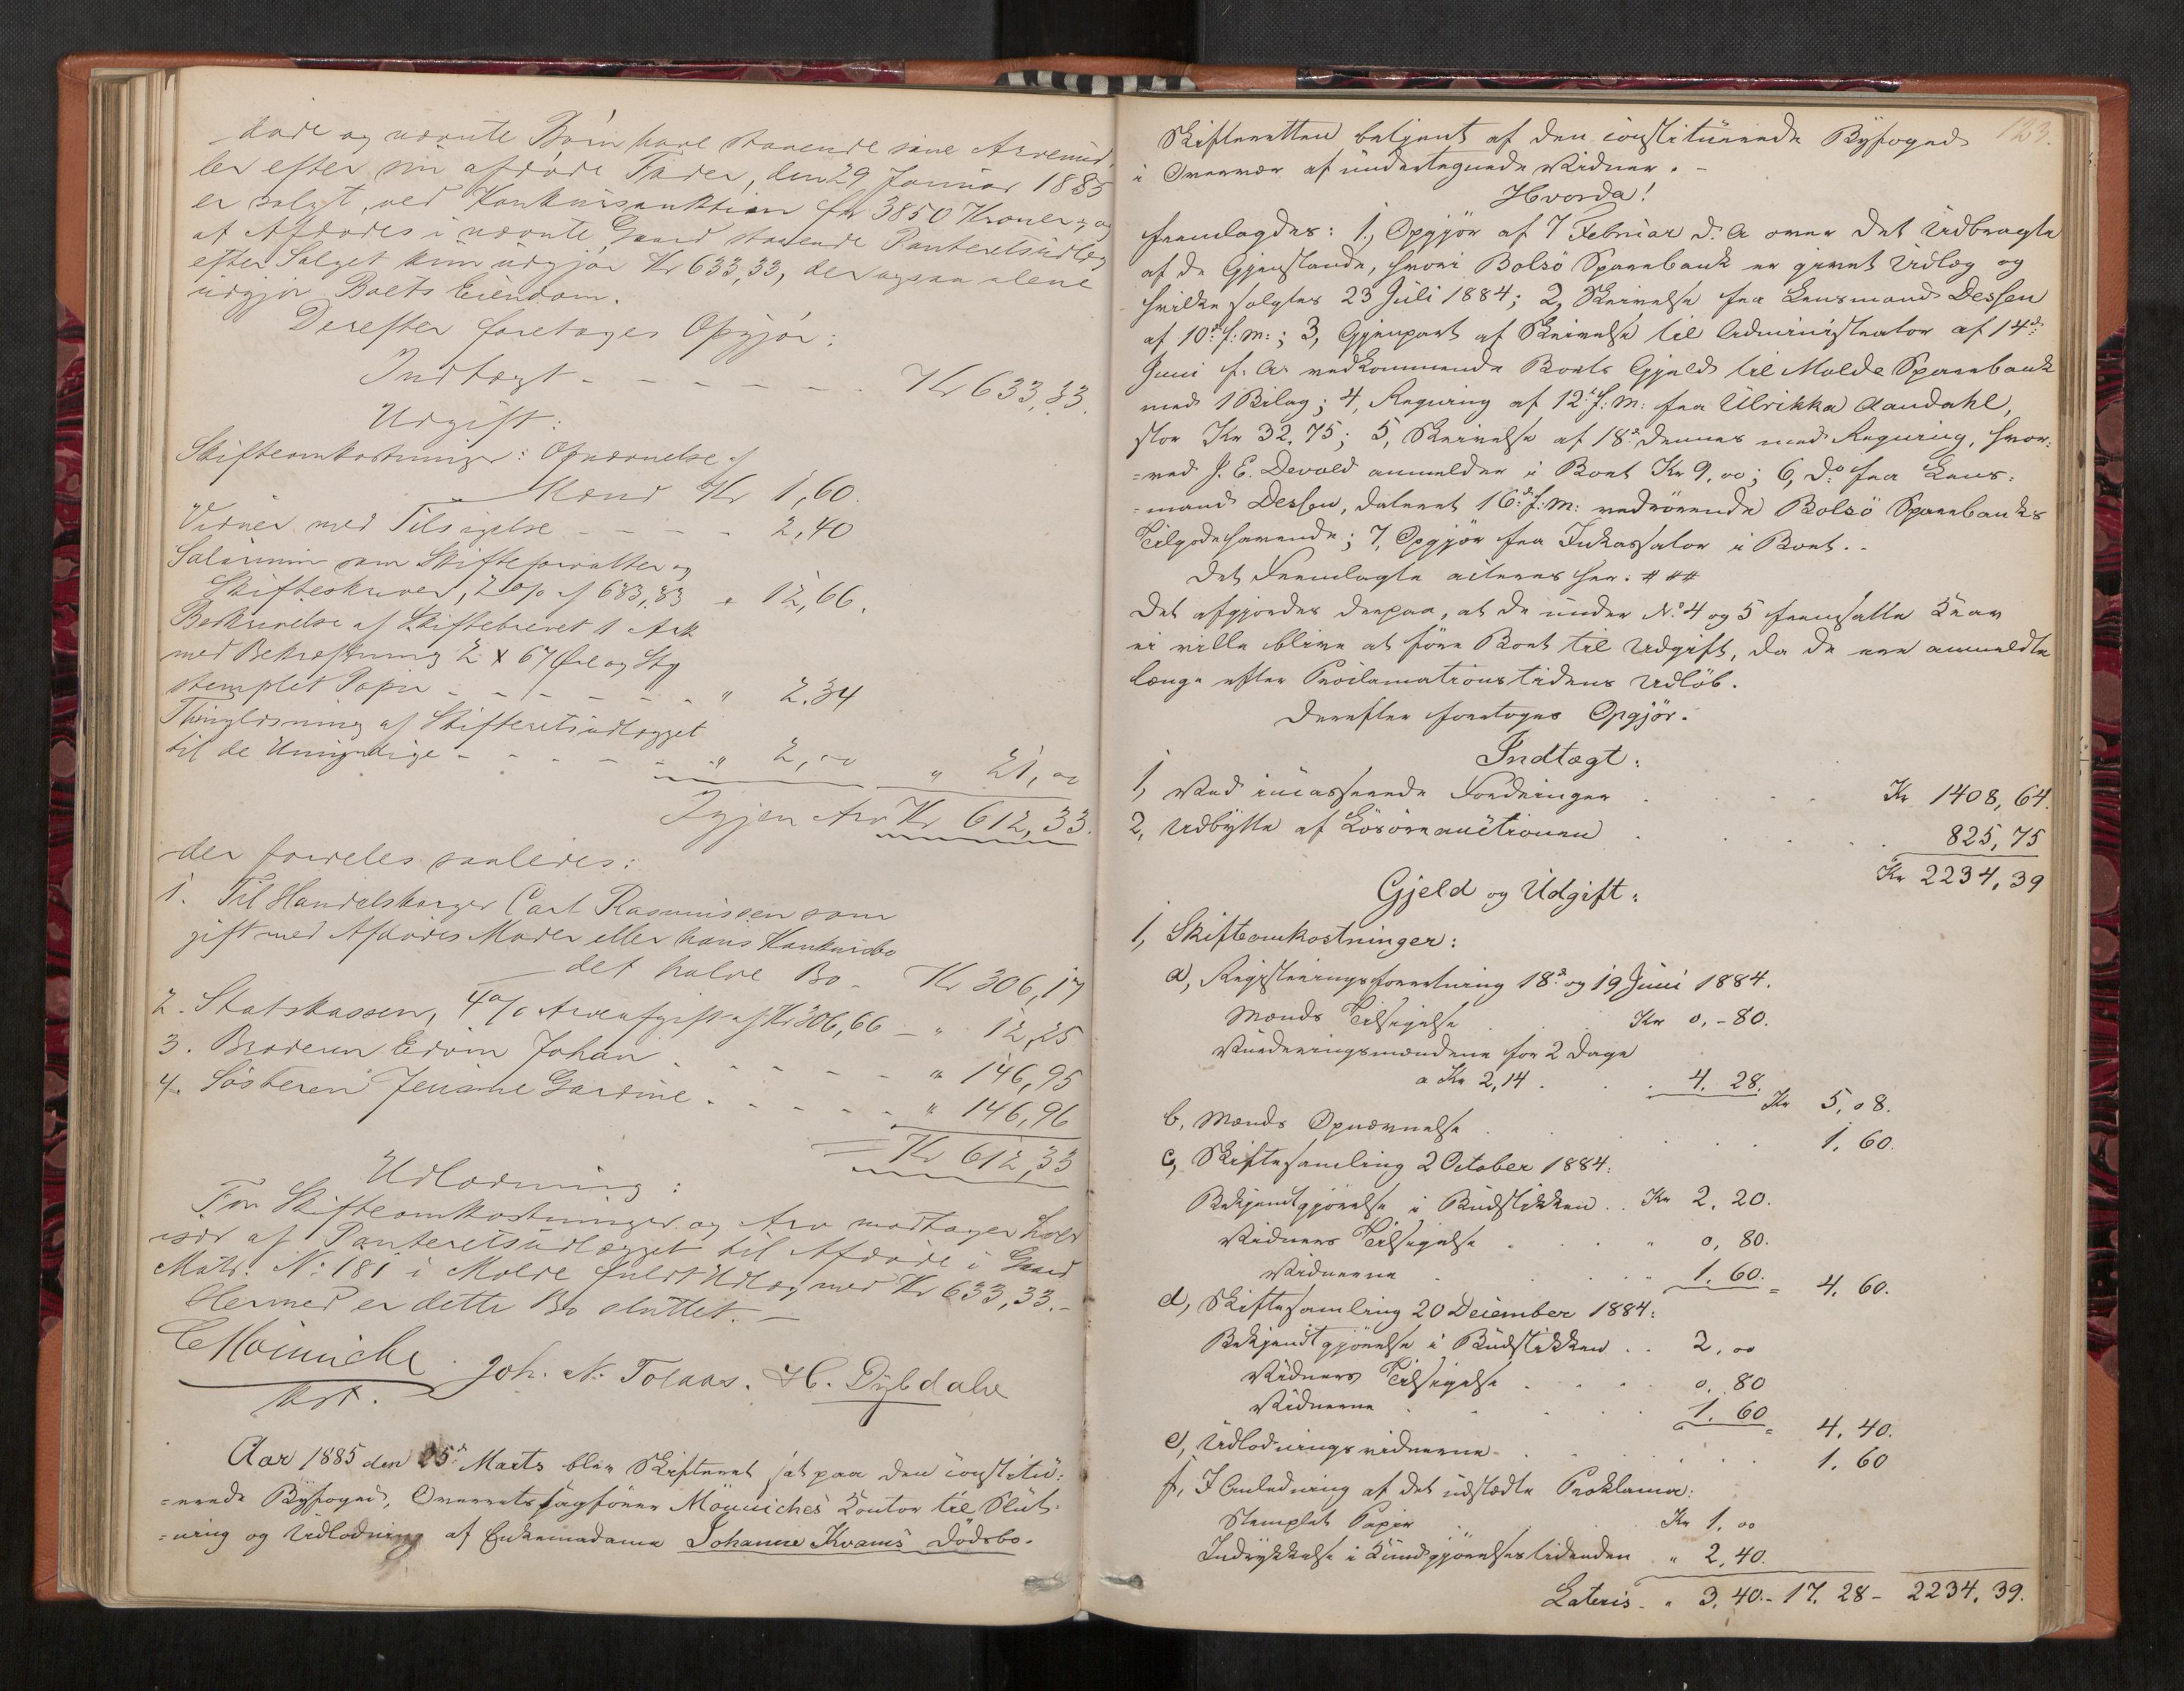 døde og nævnte Børn have staaende sine Arvemid-
ler efter sin afdøde Fader, den 29 Januar 1885
er solgt ved Konkursauktion for 3850 Kroner, og
at Afdødes i nævnte Gaard staaende Panteretsudlæg
efter Salget kun udgjør Kr 633,33, der ogsaa alene
udgjør Boets Eiendom.
Derefter foretoges Opgjør:
Indtægt - - - - - - - Kr 633,33.
Udgift:
Skifteomkostninger: Opnævnelse af
Mænd Kr 1,60.
Vidner med Tilsigelse - - - - 2,40
Salarium som Skifteforvalter og
Skifteskriver, 2 0/0 af 633,33 " 12,66.
Beskrivelse af Skiftebrevet 1 Ark
med Bekræftning 2 x 67 Øre og Stg
stemplet Papir - - - - - - " 2.34
Thinglæsning af Skifteretsudlægget
til de Umyndige - - - - - " 2,00 " 21,00
Igjen Arv Kr 612,33.
der fordeles saaledes:
1. Til Handelsborger Carl Rasmussen som
gift med Afdødes Moder eller hans Konkursbo
det halve Bo - Kr 306,17
2. Statskassen, 4% Arveafgift af Kr 306,66 - " 12,25
3. Broderen Edvin Johan - - - - - " 146,95
4. Søsteren Jensine Gardine - - - - - " 146,96
Kr 612,33
Udlodning:
For Skifteomkostninger og Arv modtager hver
især af Panteretsudlægget til Afdøde i Gaard
Matr. No: 181 i Molde fuldt Udlæg med Kr 633,33.-
Hermed er dette Bo sluttet.-
C Mönniche Joh. N. Tolaas. H. Dybdahl
kst.
Aar 1885 den 25d Marts blev Skifteret sat paa den constitu:
=erede Byfoged, Overretssagfører Mönniches Kontor til Slut-
=ning og Udlodning af Enkemadame Johanne Kvams Dödsbo.
123.
Skifteretten betjent af den constituerede Byfoged
i Overvær af undertegnede Vidner. -
Hvorda!
fremlagdes: 1, Opgjör af 7 Februar d. A over det Udbragte
af de Gjenstande, hvori Bolsö Sparebank er givet Udlæg og
hvilke solgtes 23 Juli 1884; 2, Skrivelse fra Lensmand Dessen
af 10d f: M:; 3, Gjenpart af Skrivelse til Administrator af 14d
Juni f. A. vedkommende Boets Gjeld til Molde Sparebank
med 1 Bilag; 4, Regning af 12d f: M: fra Ulrikka Aandahl,
stor Kr 32.75; 5, Skrivelse af 18d dennes med Regning, hvor:
=ved J. E. Devold anmelder i Boet Kr 9,00; 6, Do fra Lens:
=mand Dessen, dateret 16d f: M: vedrörende Bolsö Sparebanks
Tilgodehavende; 7, Opgjör fra Inkassator i Boet..
Det Fremlagte aiteres her. # ##
Det afgjordes derpaa, at de under No 4 og 5 fremsatte Krav
ei ville blive at före Boet til Udgift, da de ere anmeldte
længe efter Proclamationstidens Udlöb.
Derefter foretoges Opgjör.
Indtægt:
1, Ved incasserede Fordringer . . . . Kr 1408,64.
2, Udbytte af Lösöreauctionen . . . . 825,75
Kr 2234,39
Gjeld og Udgift:
1, Skifteomkostninger:
a, Registreringsforretning 18d og 19 Juni 1884.
Mænds Tilsigelse . . Kr 0,-80.
Vurderingsmændene for 2 Dage
a Kr 2,14 . . . 4. 28. Kr 5,08.
b, Mænds Opnævnelse . . . . . 1.60.
c, Skiftesamling 2 October 1884:
Bekjendtgjörelse i Budstikken .. Kr 2.20.
Vidners Tilsigelse . . . " 0,80.
Vidnerne . . . . " 1.60. = 4.60.
d, Skiftesamling 20 December 1884:
Bekjendtgjörelse i Budstikken .. 2,00
Vidners Tilsigelse . . . . 0.80
Vidnerne . . . . . 1.60 = 4.40.
e, Udlodningsvidnerne . . . . . . 1.60
f, I Anledning af det udstedte Proklama:
Stemplet Papir . . . Kr 1.00
Indrykkelse i Kundgjörelsestidenden " 2,40.
Lateris - " 3.40.- 17.28 - 2234.39.